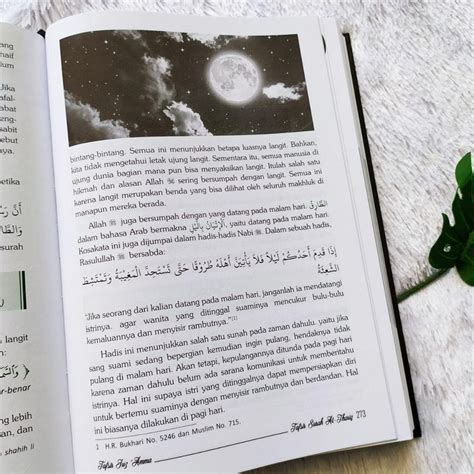 bintang-bintang. Semua ini menunjukkan betapa luasnya langit. Bahkan,
kita tidak mengetahui letak ujung langit. Sementara itu, semua manusia di
ujung dunia bagian mana pun bisa menyaksikan langit. Itulah salah satu
hikmah dan alasan Allah ﷻ sering bersumpah dengan langit. Allah
karena langit merupakan benda yang bisa dilihat oleh seluruh makhluk di
manapun mereka berada.
Allah ﷻ juga bersumpah dengan yang datang pada malam hari. الطَّارِقُ
dalam bahasa Arab bermakna الْإِتْيَانُ بِاللَّيْلِ, yaitu datang pada malam hari.
Kosakata ini juga dijumpai dalam hadis-hadis Nabi ﷺ. Dalam sebuah hadis,
Rasulullah ﷺ bersabda:
إِذَا قَدِمَ أَحَدُكُمْ لَيْلًا فَلَا يَأْتِيَنَّ أَهْلَهُ طُرُوقًا حَتَّى تَسْتَحِدَّ الْمُغِيبَةُ وَتَمْتَشِطَ
الشَّعِثَةُ
"Jika seorang dari kalian datang pada malam hari, janganlah ia mendatangi
istrinya. agar wanita yang ditinggal suaminya mencukur bulu-bulu
kemaluannya dan menyisir rambutnya."[1]
Hadis ini menunjukkan salah satu sunah pada zaman dahulu. yaitu jika
sang suami sedang bepergian kemudian ingin pulang, hendaknya tidak
pulang di malam hari. Akan tetapi, kepulangannya ditunda pada pagi hari
karena zaman dahulu belum ada sarana komunikasi untuk memberitahu
istri di rumah. Hal ini supaya istri yang ditinggalnya dapat mempersiapkan diri
untuk bertemu suaminya dengan menyisir rambutnya dan berdandan. Hal
ini bisa dilakukannya di pagi hari.
1 H.R. Bukhari No. 5246 dan Muslim No. 715.
Tafsir Juz 'Amma
Tafsir Surah At-Thariq 273